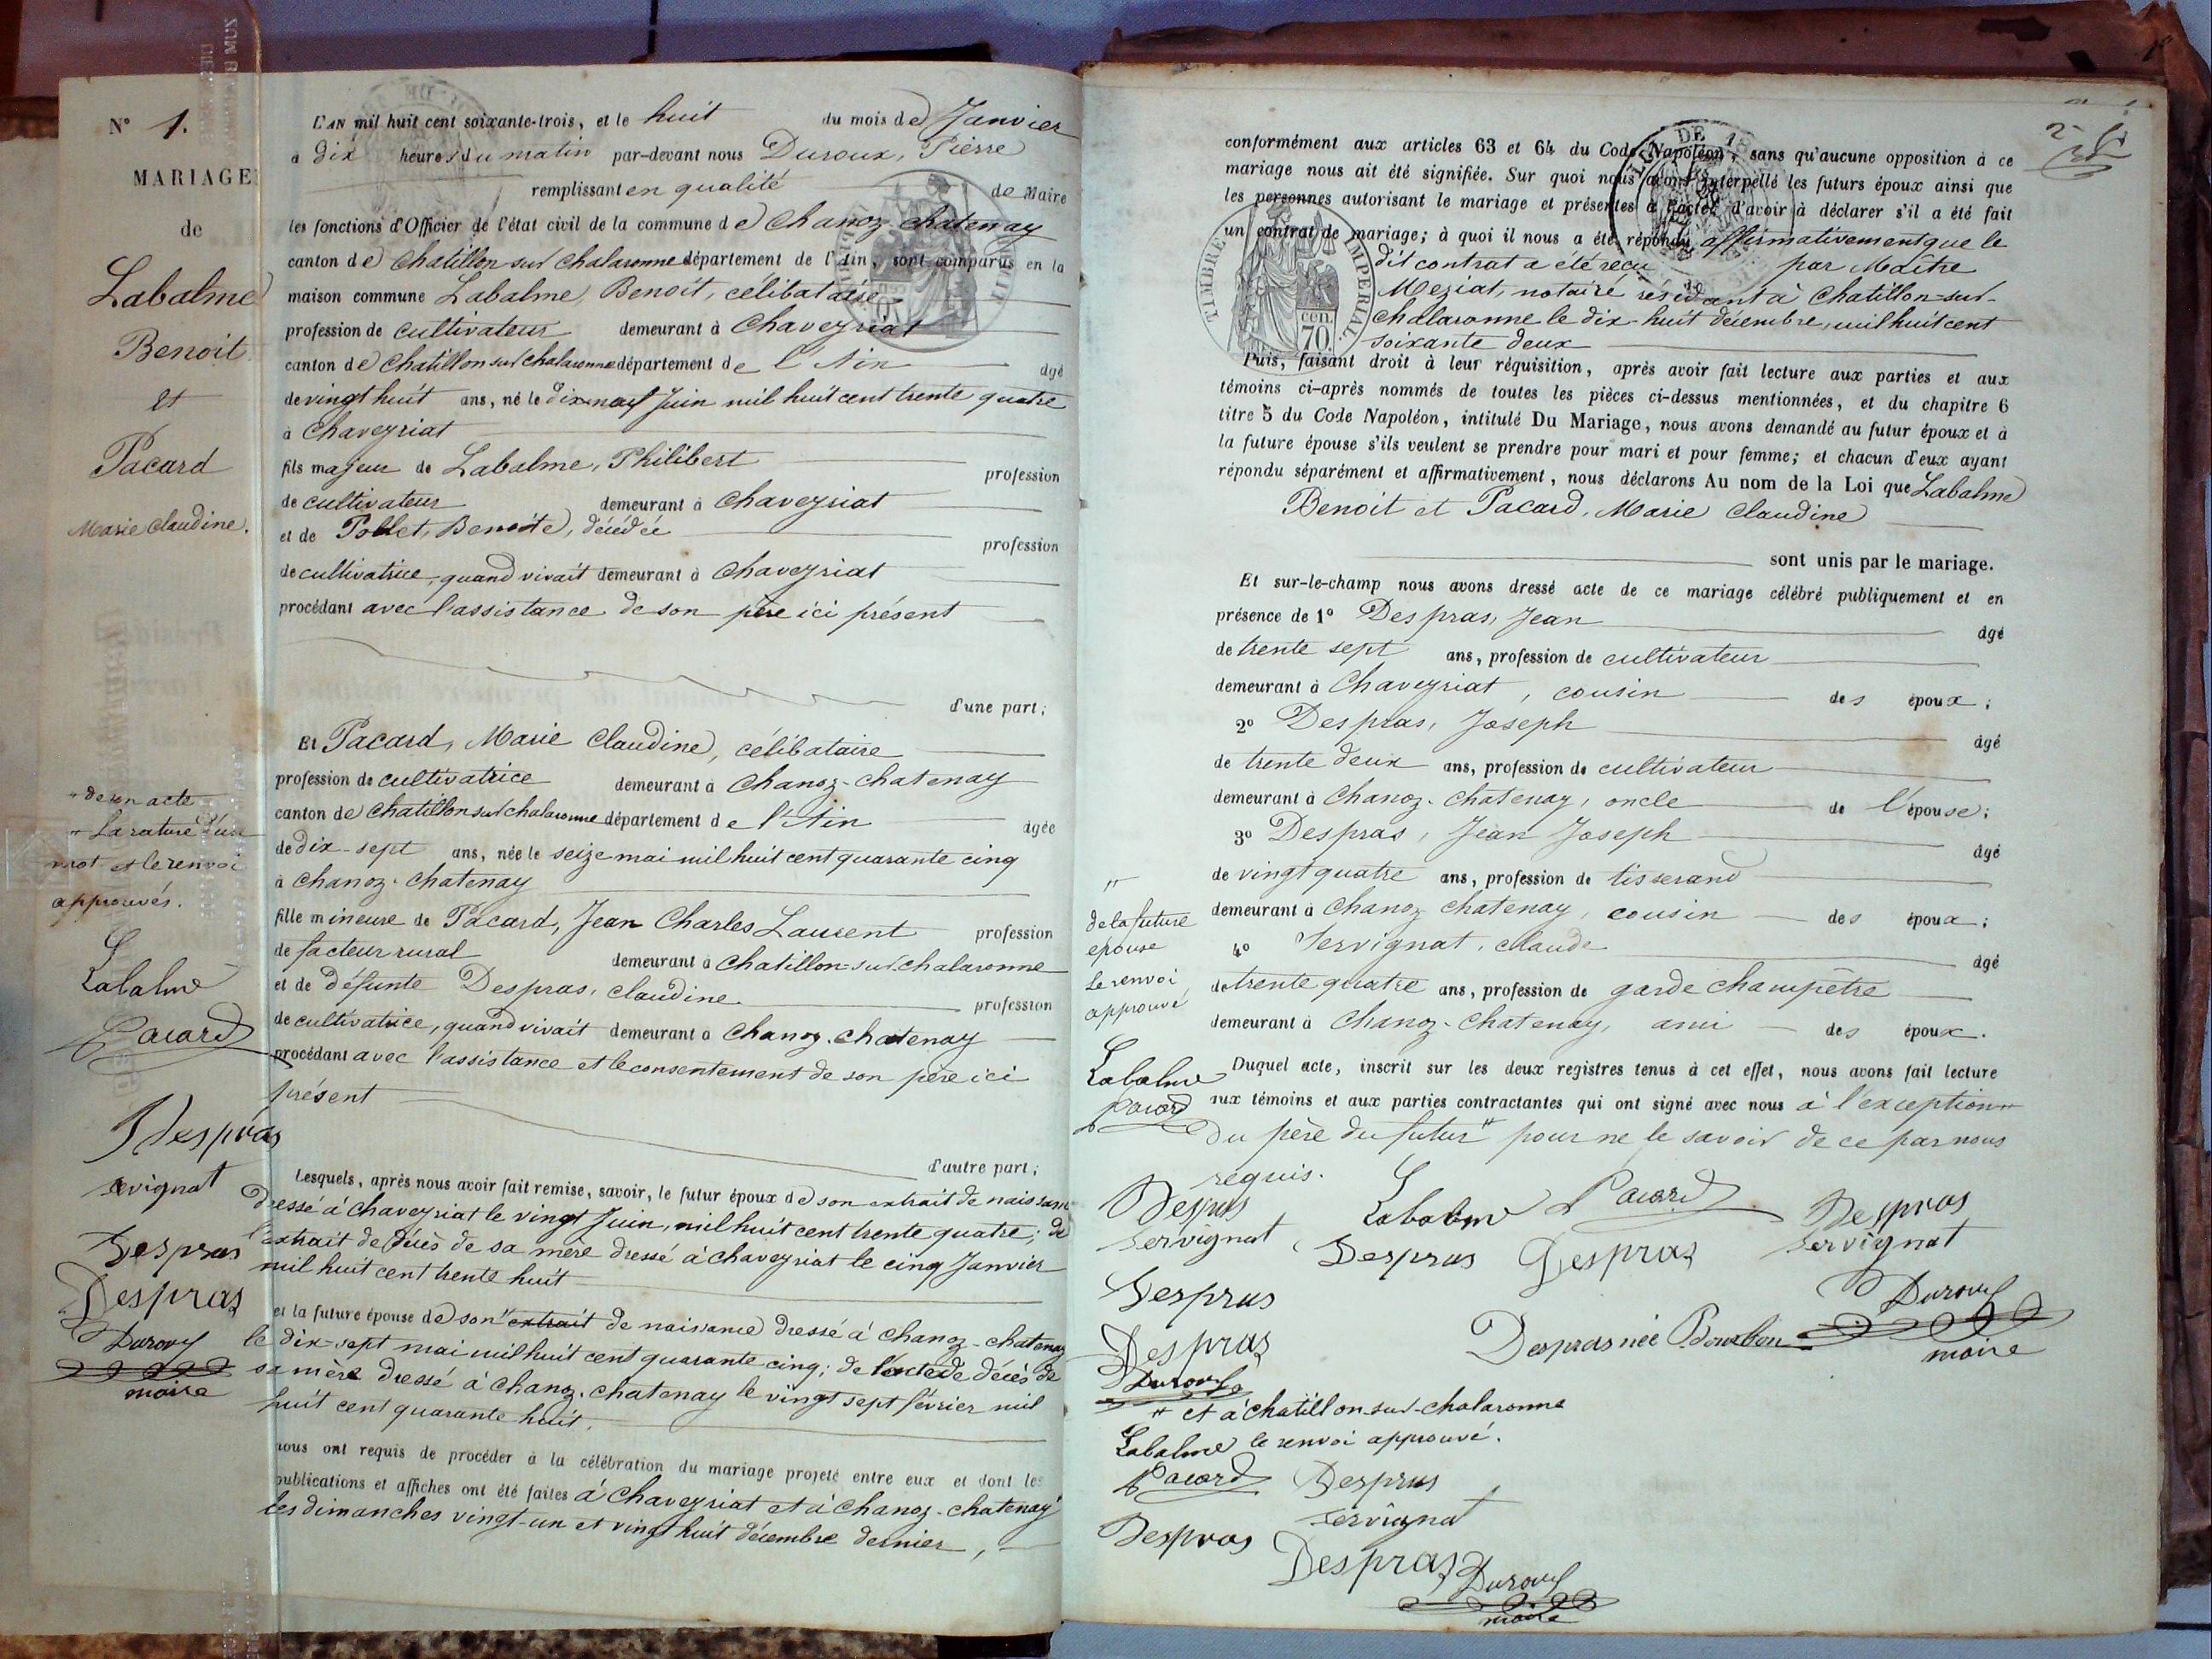 N° 1.
MARIAGE
de
Labalme
Benoit
et
Pacard
Marie Claudine.
" de son acte
" La rature d'un
mot et le renvoi
approuvés.
Labalme
Pacard
Despras
Servignat
Despras
Despras
Duroux
maire
L'AN mil huit cent soixante-trois, et le huit du mois de Janvier
à dix heures du matin par-devant nous Duroux, Pierre
remplissant en qualité de Maire
les fonctions d'Officier de l'état civil de la commune de Chanoz-Chatenay
canton de Chatillon sur Chalaronne département de l'Ain, sont comparus en la
maison commune Labalme, Benoit, célibataire
profession de cultivateur demeurant à Chaveyriat
canton de Chatillon sur Chalaronne département de l'Ain âgé
de vingt huit ans, né le dix-neuf Juin mil huit cent trente quatre
à Chaveyriat
fils majeur de Labalme, Philibert profession
de cultivateur demeurant à Chaveyriat
et de Pollet, Benoite, décédée profession
de cultivatrice, quand vivait demeurant à Chaveyriat
procédant avec l'assistance de son père ici présent
d'une part;
Et Pacard, Marie Claudine, célibataire
profession de cultivatrice demeurant à Chanoz-Chatenay
canton de Chatillon sur Chalaronne département de l'Ain âgée
de dix-sept ans, née le seize mai mil huit cent quarante cinq
à Chanoz-Chatenay
fille mineure de Pacard, Jean Charles Laurent profession
de facteur rural demeurant à Chatillon-sur-Chalaronne
et de défunte Despras, Claudine profession
de cultivatrice, quand vivait demeurant à Chanoz-Chatenay
procédant avec l'assistance et le consentement de son père ici
présent
d'autre part;
Lesquels, après nous avoir fait remise, savoir, le futur époux de son extrait de naissance
dressé à Chaveyriat le vingt Juin, mil huit cent trente quatre; de
l'extrait de décès de sa mère dressé à Chaveyriat le cinq Janvier
mil huit cent trente huit
et la future épouse de son" extrait de naissance dressé à Chanoz-Chatenay
le dix-sept mai mil huit cent quarante cinq; de l'acte de décès de
sa mère dressé à Chanoz-Chatenay le vingt sept février mil
huit cent quarante huit.
nous ont requis de procéder à la célébration du mariage projeté entre eux et dont les
publications et affiches ont été faites à Chaveyriat et à Chanoz-Chatenay"
les dimanches vingt-un et vingt huit décembre dernier,
2
conformément aux articles 63 et 64 du Code Napoléon, sans qu'aucune opposition à ce
mariage nous ait été signifiée. Sur quoi nous avons interpellé les futurs époux ainsi que
les personnes autorisant le mariage et présentes à l'acte, d'avoir à déclarer s'il a été fait
un contrat de mariage; à quoi il nous a été répondu affirmativement que le
dit contrat a été reçu par Maître
Meziat, notaire résidant à Chatillon-sur-
Chalaronne le dix-huit décembre, mil huit cent
soixante deux
TIMBRE IMPÉRIAL
cen.
70.
Puis, faisant droit à leur réquisition, après avoir fait lecture aux parties et aux
témoins ci-après nommés de toutes les pièces ci-dessus mentionnées, et du chapitre 6
titre 5 du Code Napoléon, intitulé Du Mariage, nous avons demandé au futur époux et à
la future épouse s'ils veulent se prendre pour mari et pour femme; et chacun d'eux ayant
répondu séparément et affirmativement, nous déclarons Au nom de la Loi que Labalme
Benoit et Pacard, Marie Claudine
sont unis par le mariage.
Et sur-le-champ nous avons dressé acte de ce mariage célébré publiquement et en
présence de 1° Despras, Jean âgé
de trente sept ans, profession de cultivateur
demeurant à Chaveyriat, cousin des époux;
2° Despras, Joseph âgé
de trente deux ans, profession de cultivateur
demeurant à Chanoz-Chatenay, oncle de l'épouse;
3° Despras, Jean Joseph âgé
de vingt quatre ans, profession de tisserand
demeurant à Chanoz Chatenay, cousin des époux;
4° Servignat, Claude âgé
de trente quatre ans, profession de garde champêtre
demeurant à Chanoz-Chatenay, ami des époux.
Duquel acte, inscrit sur les deux registres tenus à cet effet, nous avons fait lecture
aux témoins et aux parties contractantes qui ont signé avec nous à l'exception
du père du futur" pour ne le savoir de ce par nous
requis.
"
de la future
épouse
le renvoi
approuvé
Labalme
Pacard
Despras Labalme Pacard Despras
Servignat Despras Despras Servignat
Despras Duroux
Despras Despras née Bourbon maire
Duroux
" et à Chatillon-sur-Chalaronne
Labalme le renvoi approuvé.
Pacard Despras
Servignat
Despras Despras
Duroux
maire